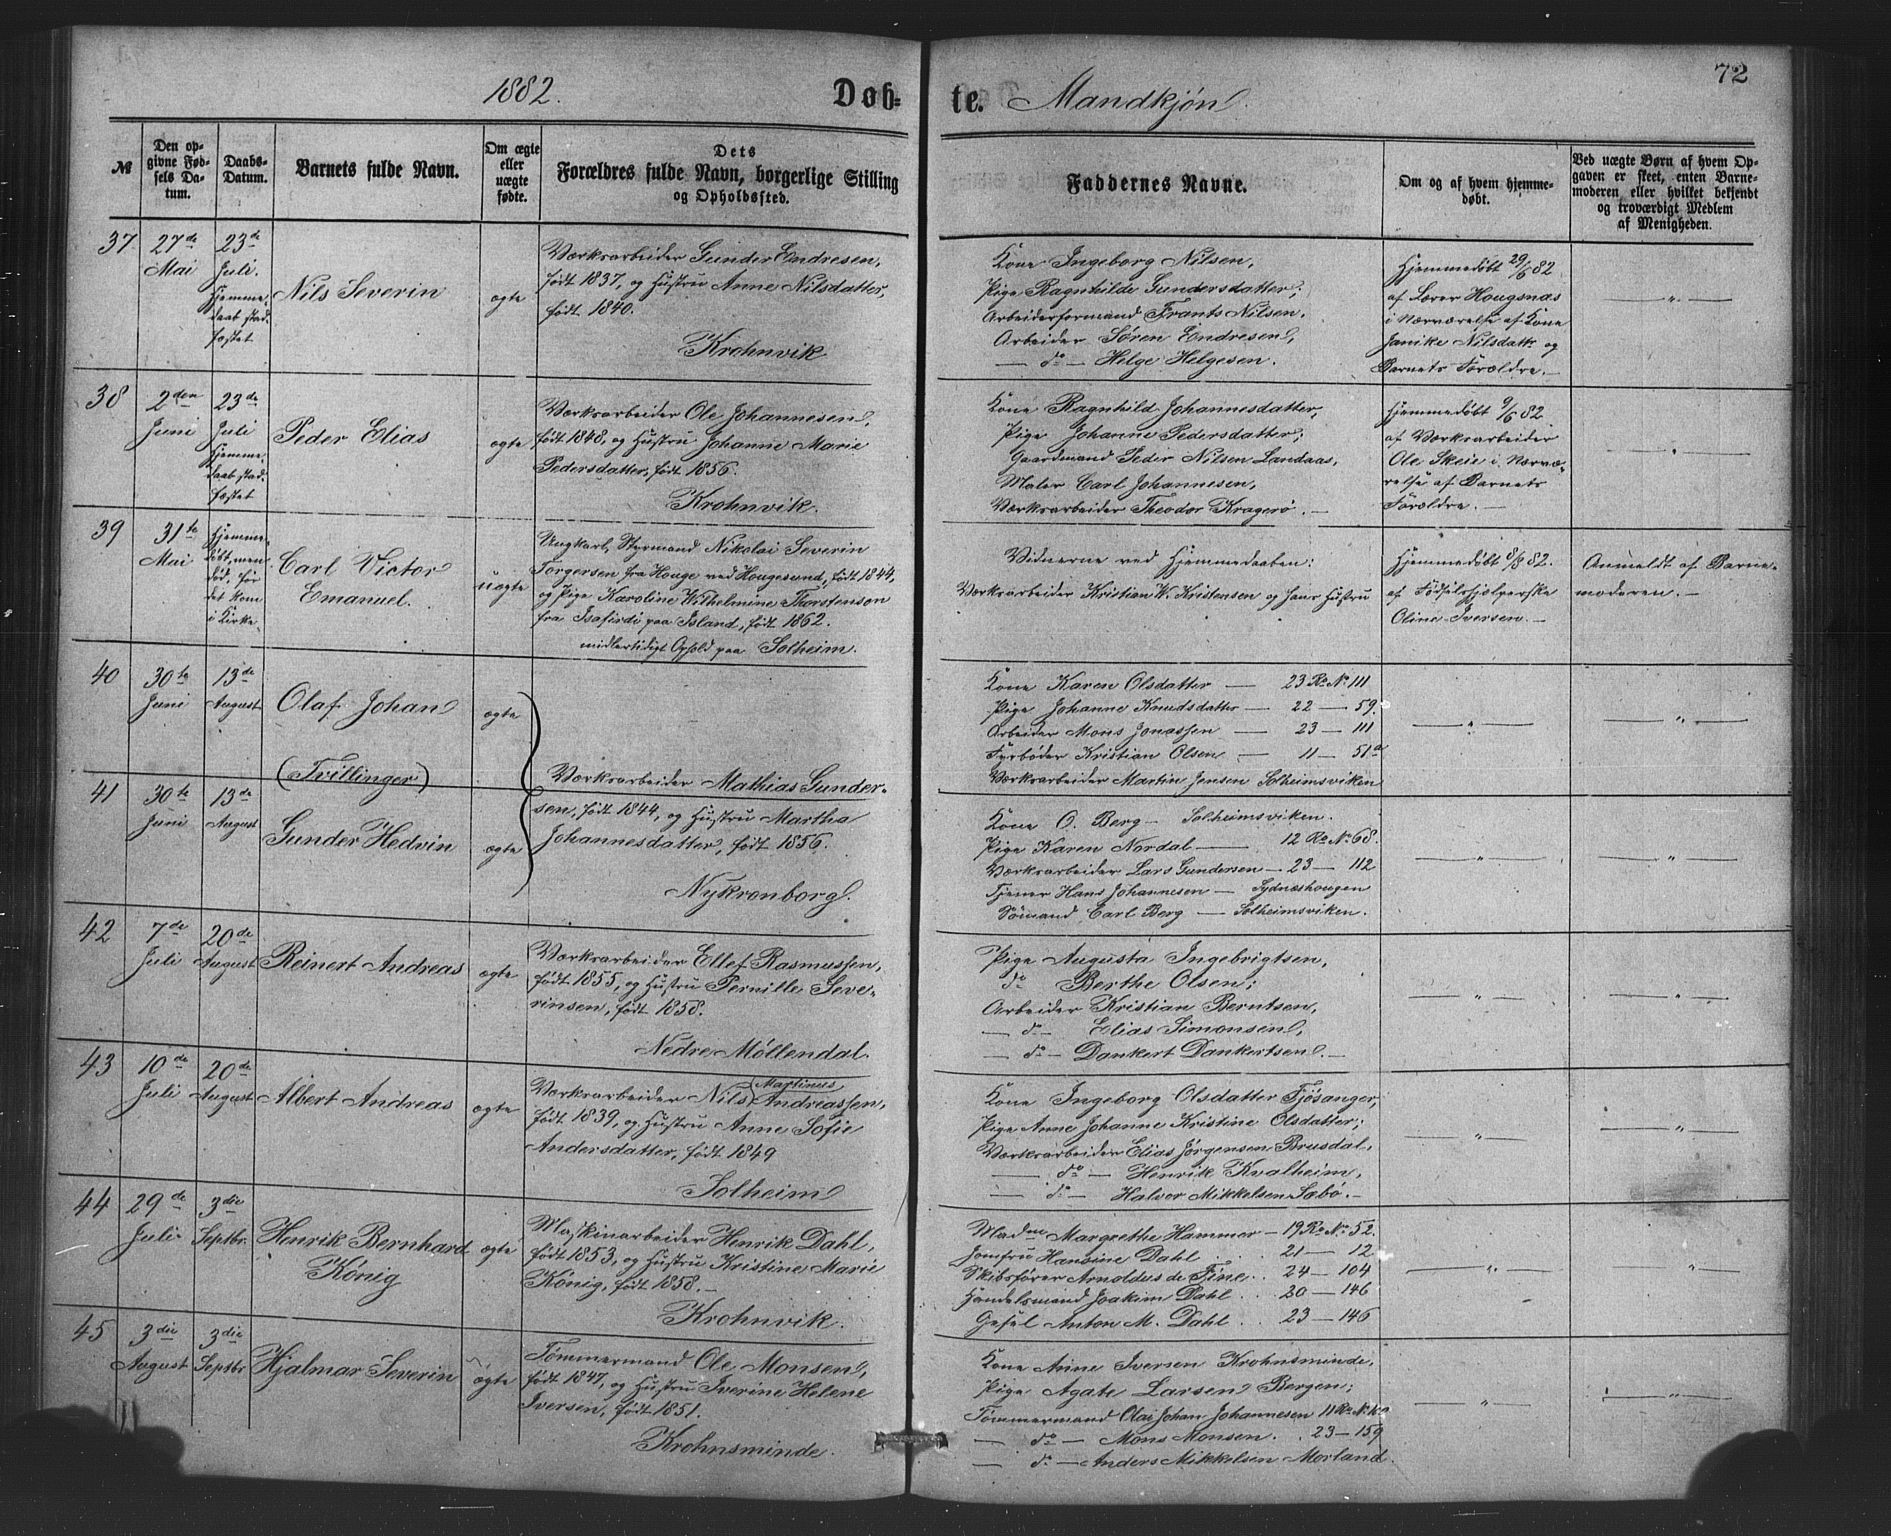 1882.
Døb-
te. Mandkjøn
72
№
Den op-
givne Fød-
sels Da-
tum.
Daabs-
Datum.
Barnets fulde Navn.
Om ægte
eller
uægte
fødte.
Dets
Forældres fulde Navn, borgerlige Stilling
og Opholdssted.
Faddernes Navne.
Om og af hvem hjemme-
døbt.
Ved uægte Børn af hvem Op-
gaven er skeet, enten Barne-
moderen eller hvilket bekjendt
og troværdigt Medlem
af Menigheden.
37
27de
Mai
23de
Juli.
Hjemme-
daab stad-
fæstet
Nils Severin
ægte
Værksarbeider Gunder Endresen,
født 1837, og Hustru Anne Nilsdatter,
født 1840.
Krohnvik
Kone Ingeborg Nilsen,
Pige Ragnhilde Gundersdatter;
Arbeiderformand Frants Nilsen,
Arbeider Søren Endresen,
— do — Helge Helgesen.
Hjemmedøbt 29/6 82
af Lærer Hougsnæs
i Nærværelse af Kone
Janike Nilsdattr. og
Barnets Forældre. —
— " —
38
2den
Juni
23de
Juli
Hjemme-
daab stad-
fæstet
Peder Elias
ægte
Værksarbeider Ole Johannesen,
født 1848, og Hustru Johanne Marie
Pedersdatter, født 1856.
Krohnvik.
Kone Ragnhild Johannesdatter,
Pige Johanne Pedersdatter;
Gaardmand Peder Nilsen Landaas,
Maler Carl Johannesen,
Værksarbeider Theodor Kragerø. —
Hjemmedøbt 9/6 82
af Værksarbeider
Ole Skeie i Nærvæ-
relse af Barnets
Forældre. —
— " —
39
31te
Mai
Hjemme-
døbt, men
død, før
det kom
i Kirke.
Carl Victor
Emanuel.
uægte
Ungkarl, Styrmand Nikolai Severin
Torgersen fra Houge ved Hougesund, født 1844,
og Pige Karoline Wilhelmine Thorstenson
fra Isafirdi paa Island, født 1862.
midlertidigt Ophold paa Solheim.
Vidnerne ved Hjemmedaaben:
Værksarbeider Kristian W. Kristensen og hans Hustru
Hjemmedøbt 6/8 82.
af Fødselshjælperske
Oline Iversen. —
Anmeldt af Barne-
moderen. —
40
30te
Juni
13de
August
Olaf Johan
ægte
(Tvillinger)
Kone Karen Olsdatter — 23 Ro. No. 111
Pige Johanne Knudsdatter — 22 — 59.
Arbeider Mons Jonassen — 23 — 111
Fyrbøder Kristian Olsen — 11 — 51a
Værksarbeider Martin Jensen Solheimsviken
— " —
— " —
41
30te
Juni
13de
August
Gunder Hedvin
ægte
Værksarbeider Mathias Gunder-
sen, født 1844, og Hustru Martha
Johannesdatter, født 1856.
Nykronborg.
Kone O. Berg — Solheimsviken.
Pige Karen Nordal — 12 Ro. No. 68.
Værksarbeider Lars Gundersen — 23 — 112
Tjener Hans Johannesen — Sydnæshougen
Sømand Carl Berg — Solheimsviken.
— " —
— " —
42
7de
Juli
20de
August
Reinert Andreas
ægte
Værksarbeider Ellef Rasmussen,
født 1855, og Hustru Pernille Seve-
rinsen, født 1858.
Nedre Møllendal.
Pige Augusta Ingebrigtsen,
do Berthe Olsen;
Arbeider Kristian Berntsen,
— do — Elias Simonsen,
— do — Dankert Dankertsen. —
— " —
— " —
43
10de
Juli
20de
August
Albert Andreas
ægte
Værksarbeider Nils (Martinus
Andreassen,
født 1839, og Hustru Anne Sofie
Andersdatter, født 1849
Solheim
Kone Ingeborg Olsdatter Fjøsanger,
Pige Anne Johanne Kristine Olsdatter;
Værksarbeider Elias Jørgensen Brusdal,
— do — Henrik Kvalheim,
— do — Halvor Mikkelsen Sæbø. —
— " —
— " —
44
29de
Juli
3die
Septbr.
Henrik Bernhard
König
ægte
Maskinarbeider Henrik Dahl,
født 1853, og Hustru Kristine Marie
König, født 1858. —
Krohnvik.
Madme Margrethe Hammer — 19. Ro. No. 52.
Jomfru Hansine Dahl . . 21 — 12
Skibsfører Arnoldus de Fine . . 24 — 104
Handelsmand Joakim Dahl . . 20 — 146
Gesel Anton M. Dahl . . 23 — 146
— " —
— " —
45
3die
August
3die
Septbr
Hjalmar Severin
ægte
Tømmermand Ole Monsen,
født 1847, og Hustru Iverine Helene
Iversen, født 1851.
Krohnsminde.
Kone Anne Iversen Krohnsminde,
Pige Agate Larsen Bergen;
Tømmermand Olai Johan Johannesen 11 Ro. No.
— do — Mons Monsen. . 23 — 159
— do — Anders Mikkelsen Morland.
— " —
— " —